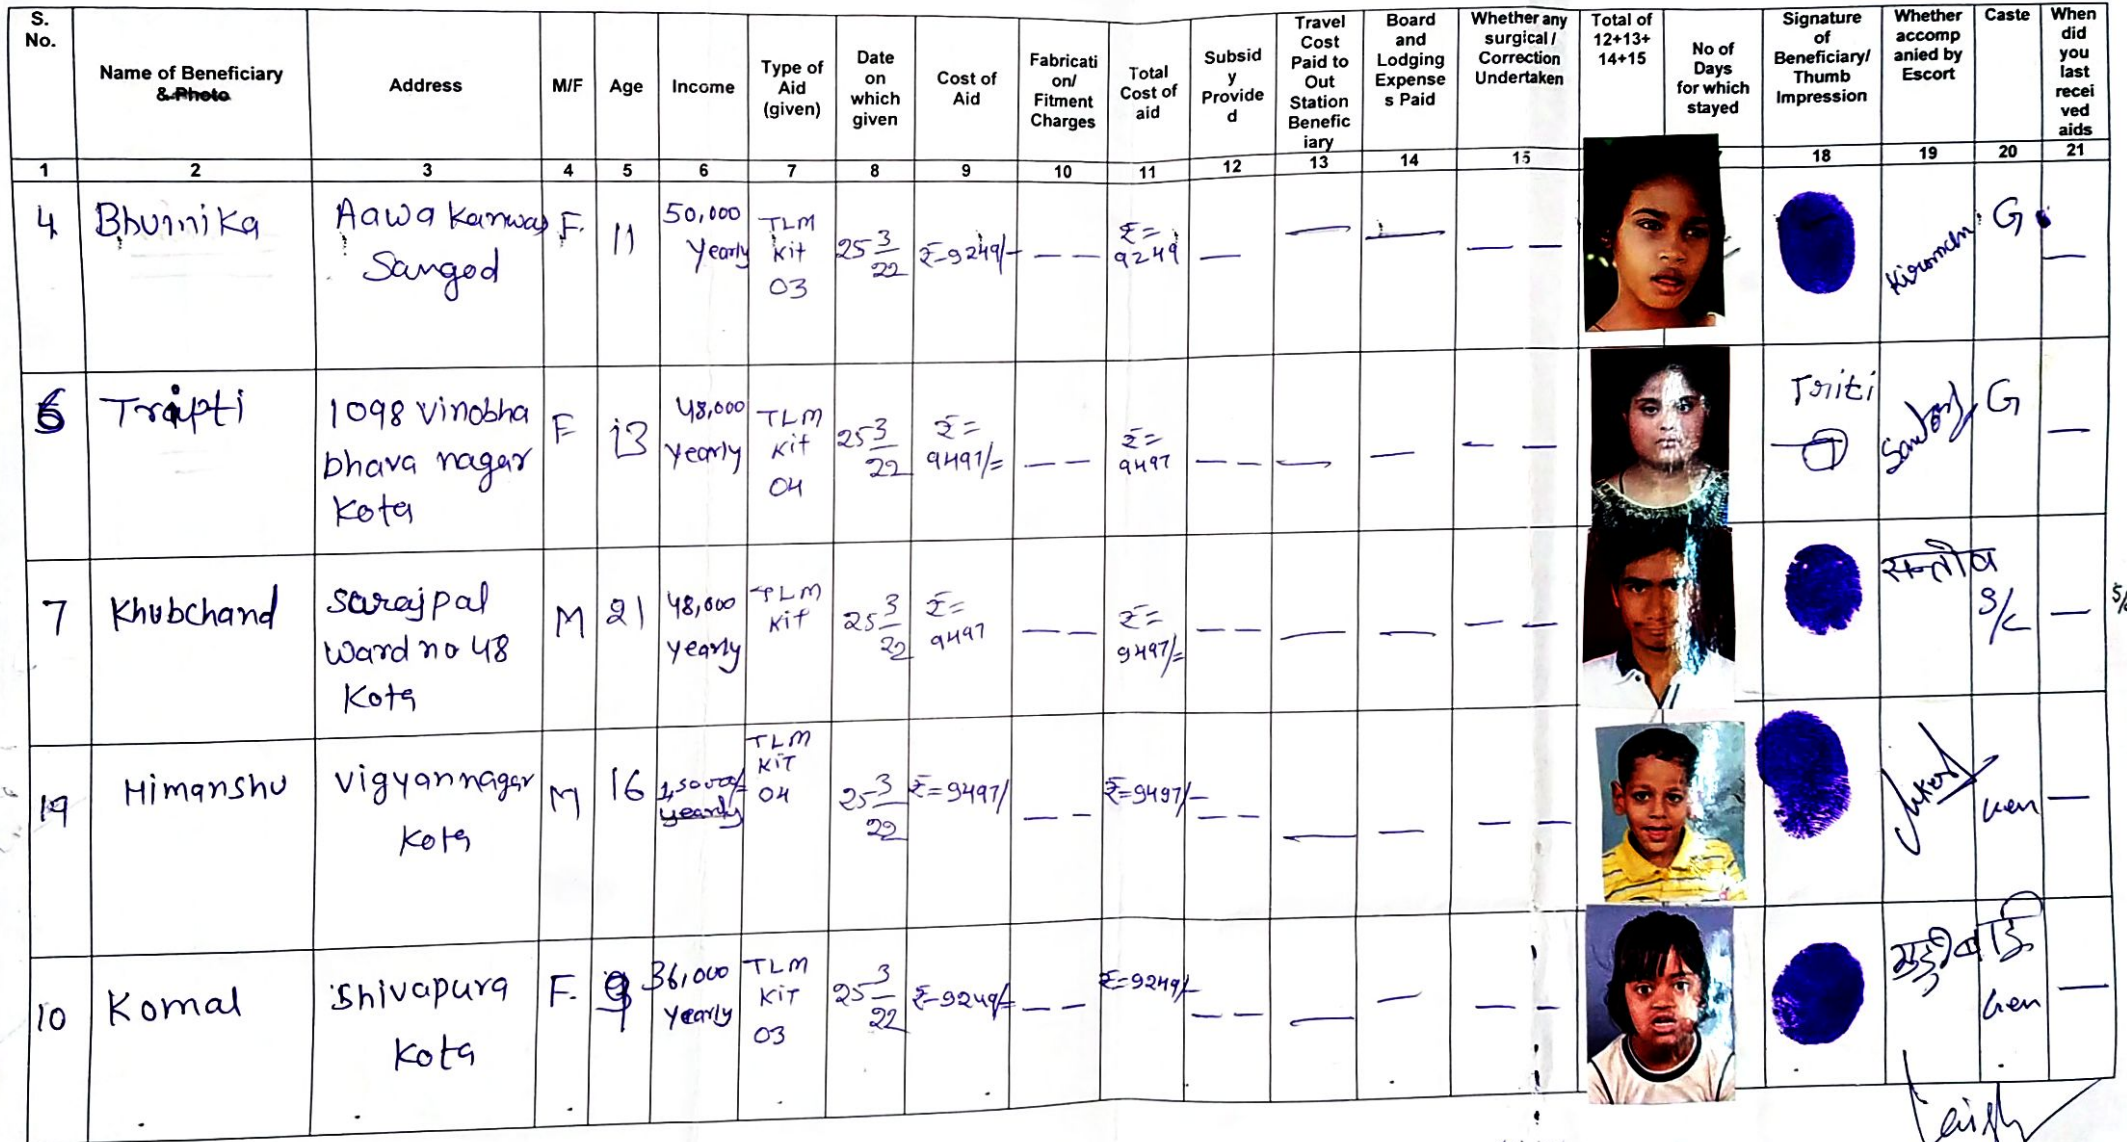 S. No.
Name of Beneficiary & Photo
Address
M/F
Age
Income
Type of Aid (given)
Date on which given
Cost of Aid
Fabricati on/ Fitment Charges
Total Cost of aid
Subsid y Provide d
Travel Cost Paid to Out Station Benefic iary
Board and Lodging Expense s Paid
Whether any surgical / Correction Undertaken
Total of 12+13+ 14+15
No of Days for which stayed
Signature of Beneficiary/ Thumb Impression
Whether accomp anied by Escort
Caste
When did you last recei ved aids
1 2 3 4 5 6 7 8 9 10 11 12 13 14 15 18 19 20 21
4 Bhumika Aawa Kanwas Sangod F. 11 50,000 Yearly TLM Kit 03 25 3/22 ₹=9249/- — — ₹= 9249 — — — — — G —
6 Tripti 1098 vinobha bhava nagar Kota F 13 48,000 Yearly TLM Kit 04 25 3/22 ₹= 9497/= — — ₹= 9497 — — — — — — Triti Santosh G —
7 Khubchand Sarajpal Ward no 48 Kota M 21 48,000 yearly TLM Kit 25 3/22 ₹= 9497 — — ₹= 9497/= — — — — — — सन्तोष S/C —
19 Himanshu Vigyannagar Kota M 16 yearly TLM KIT 04 25 3/22 ₹=9497/ — — ₹=9497/- — — — — — — —
10 Komal Shivapura Kota F. 9 36,000 Yearly TLM KIT 03 25 3/22 ₹=9249/= — — ₹=9249/- — — — — — — Gen —